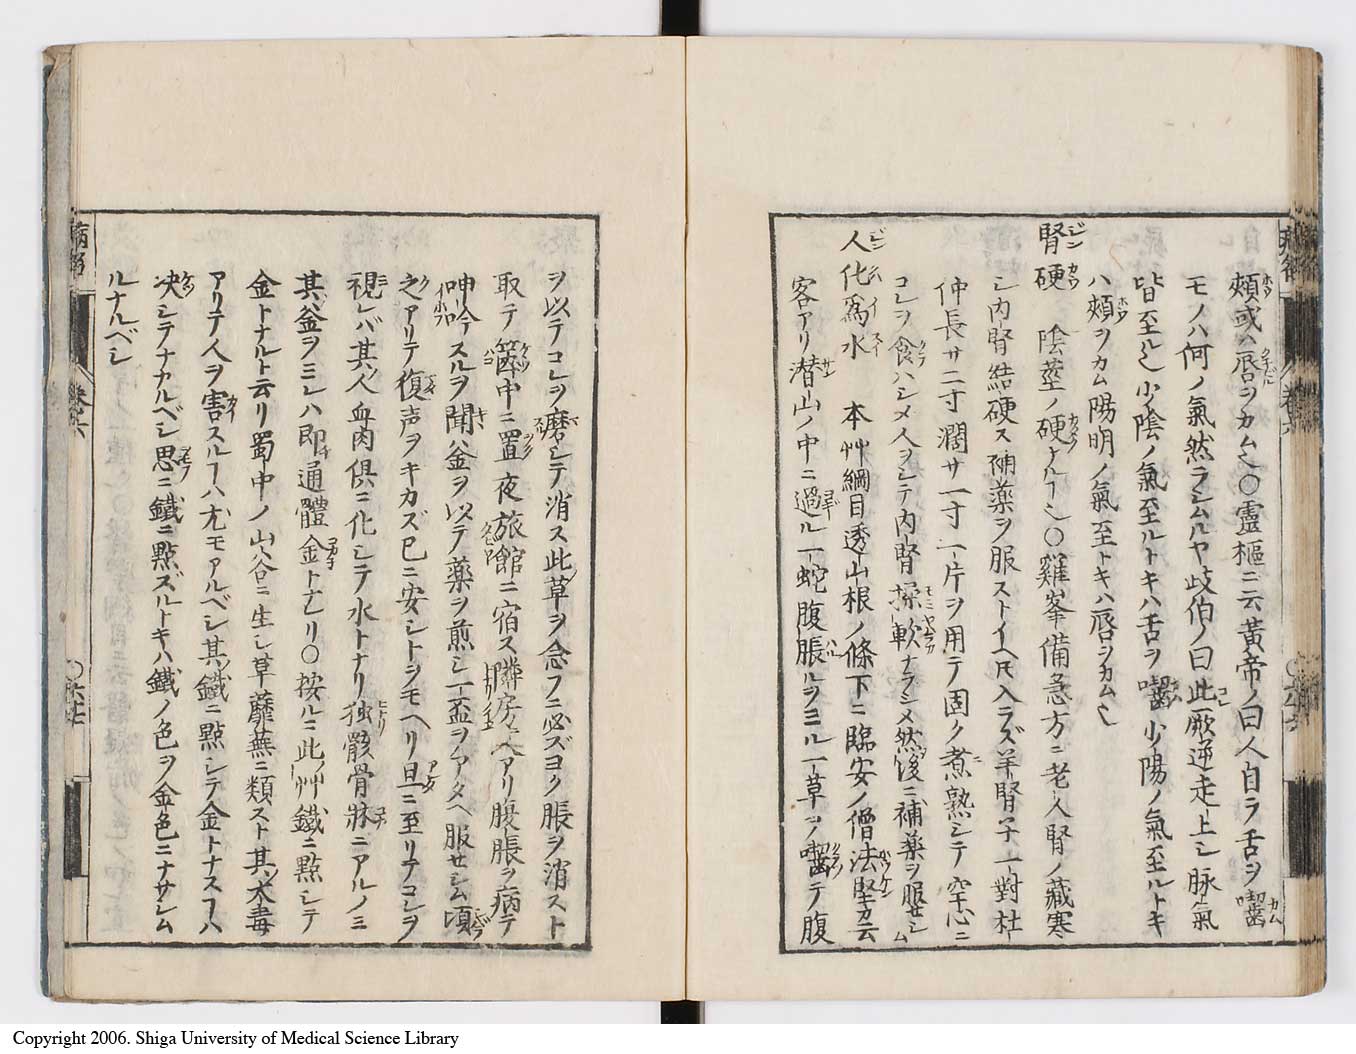 頰或ハ唇ヲカム也〇靈樞ニ云黃帝ノ曰人自ラ舌ヲ嚙
モノハ何ノ氣然ラシムルヤ歧伯ノ曰此厥逆走上シ脉氣
皆至ル也少陰ノ氣至ルトキハ舌ヲ嚙少陽ノ氣至ルトキ
ハ頰ヲカム陽明ノ氣至トキハ唇ヲカム也
腎硬 陰莖ノ硬ナルヿ也〇雞峯備急方ニ老人腎ノ藏寒
シ内腎結硬ス補薬ヲ服ストイヘ𪜈入ラズ羊腎子一對杜
仲長サ二寸濶サ一寸一片ヲ用テ固ク煮熟シテ空心ニ
コレヲ食ハシメ人ヲシテ内腎揉軟ナラシメ然後ニ補薬ヲ服セシム
人化爲水 本艸綱目透山根ノ條下ニ臨安ノ僧法堅カ云
客アリ潜山ノ中ニ過ル一蛇腹脹ルヲミル一草ヲ嚙テ腹
ヲ以テコレヲ磨シテ消ス此草ヲ念フニ必ズヨク脹ヲ消スト
取テ篋中ニ置夜旅館ニ宿ス隣房ニ人アリ腹脹ヲ病テ
呻吟スルヲ聞釜ヲ以テ薬ヲ煎シ一盃ヲアタヘ服セシム頃
之アリテ復声ヲキカズ已ニ安シトヲモヘリ旦ニ至リテコレヲ
視レバ其人血肉俱ニ化シテ水トナリ独骸骨牀ニアルノミ
其釜ヲミレハ即通體金トナレリ〇按ルニ此艸鐵ニ點シテ
金トナルト云リ蜀中ノ山谷ニ生シ草蘼蕪ニ類スト其大毒
アリテ人ヲ害スルヿハ尤モアルベシ其鐵ニ點シテ金トナスヿハ
决シテナカルベシ思ニ鐵ニ點ズルトキハ鐵ノ色ヲ金色ニナサシム
ルナルベシ
Copyright 2006. Shiga University of Medical Science Library